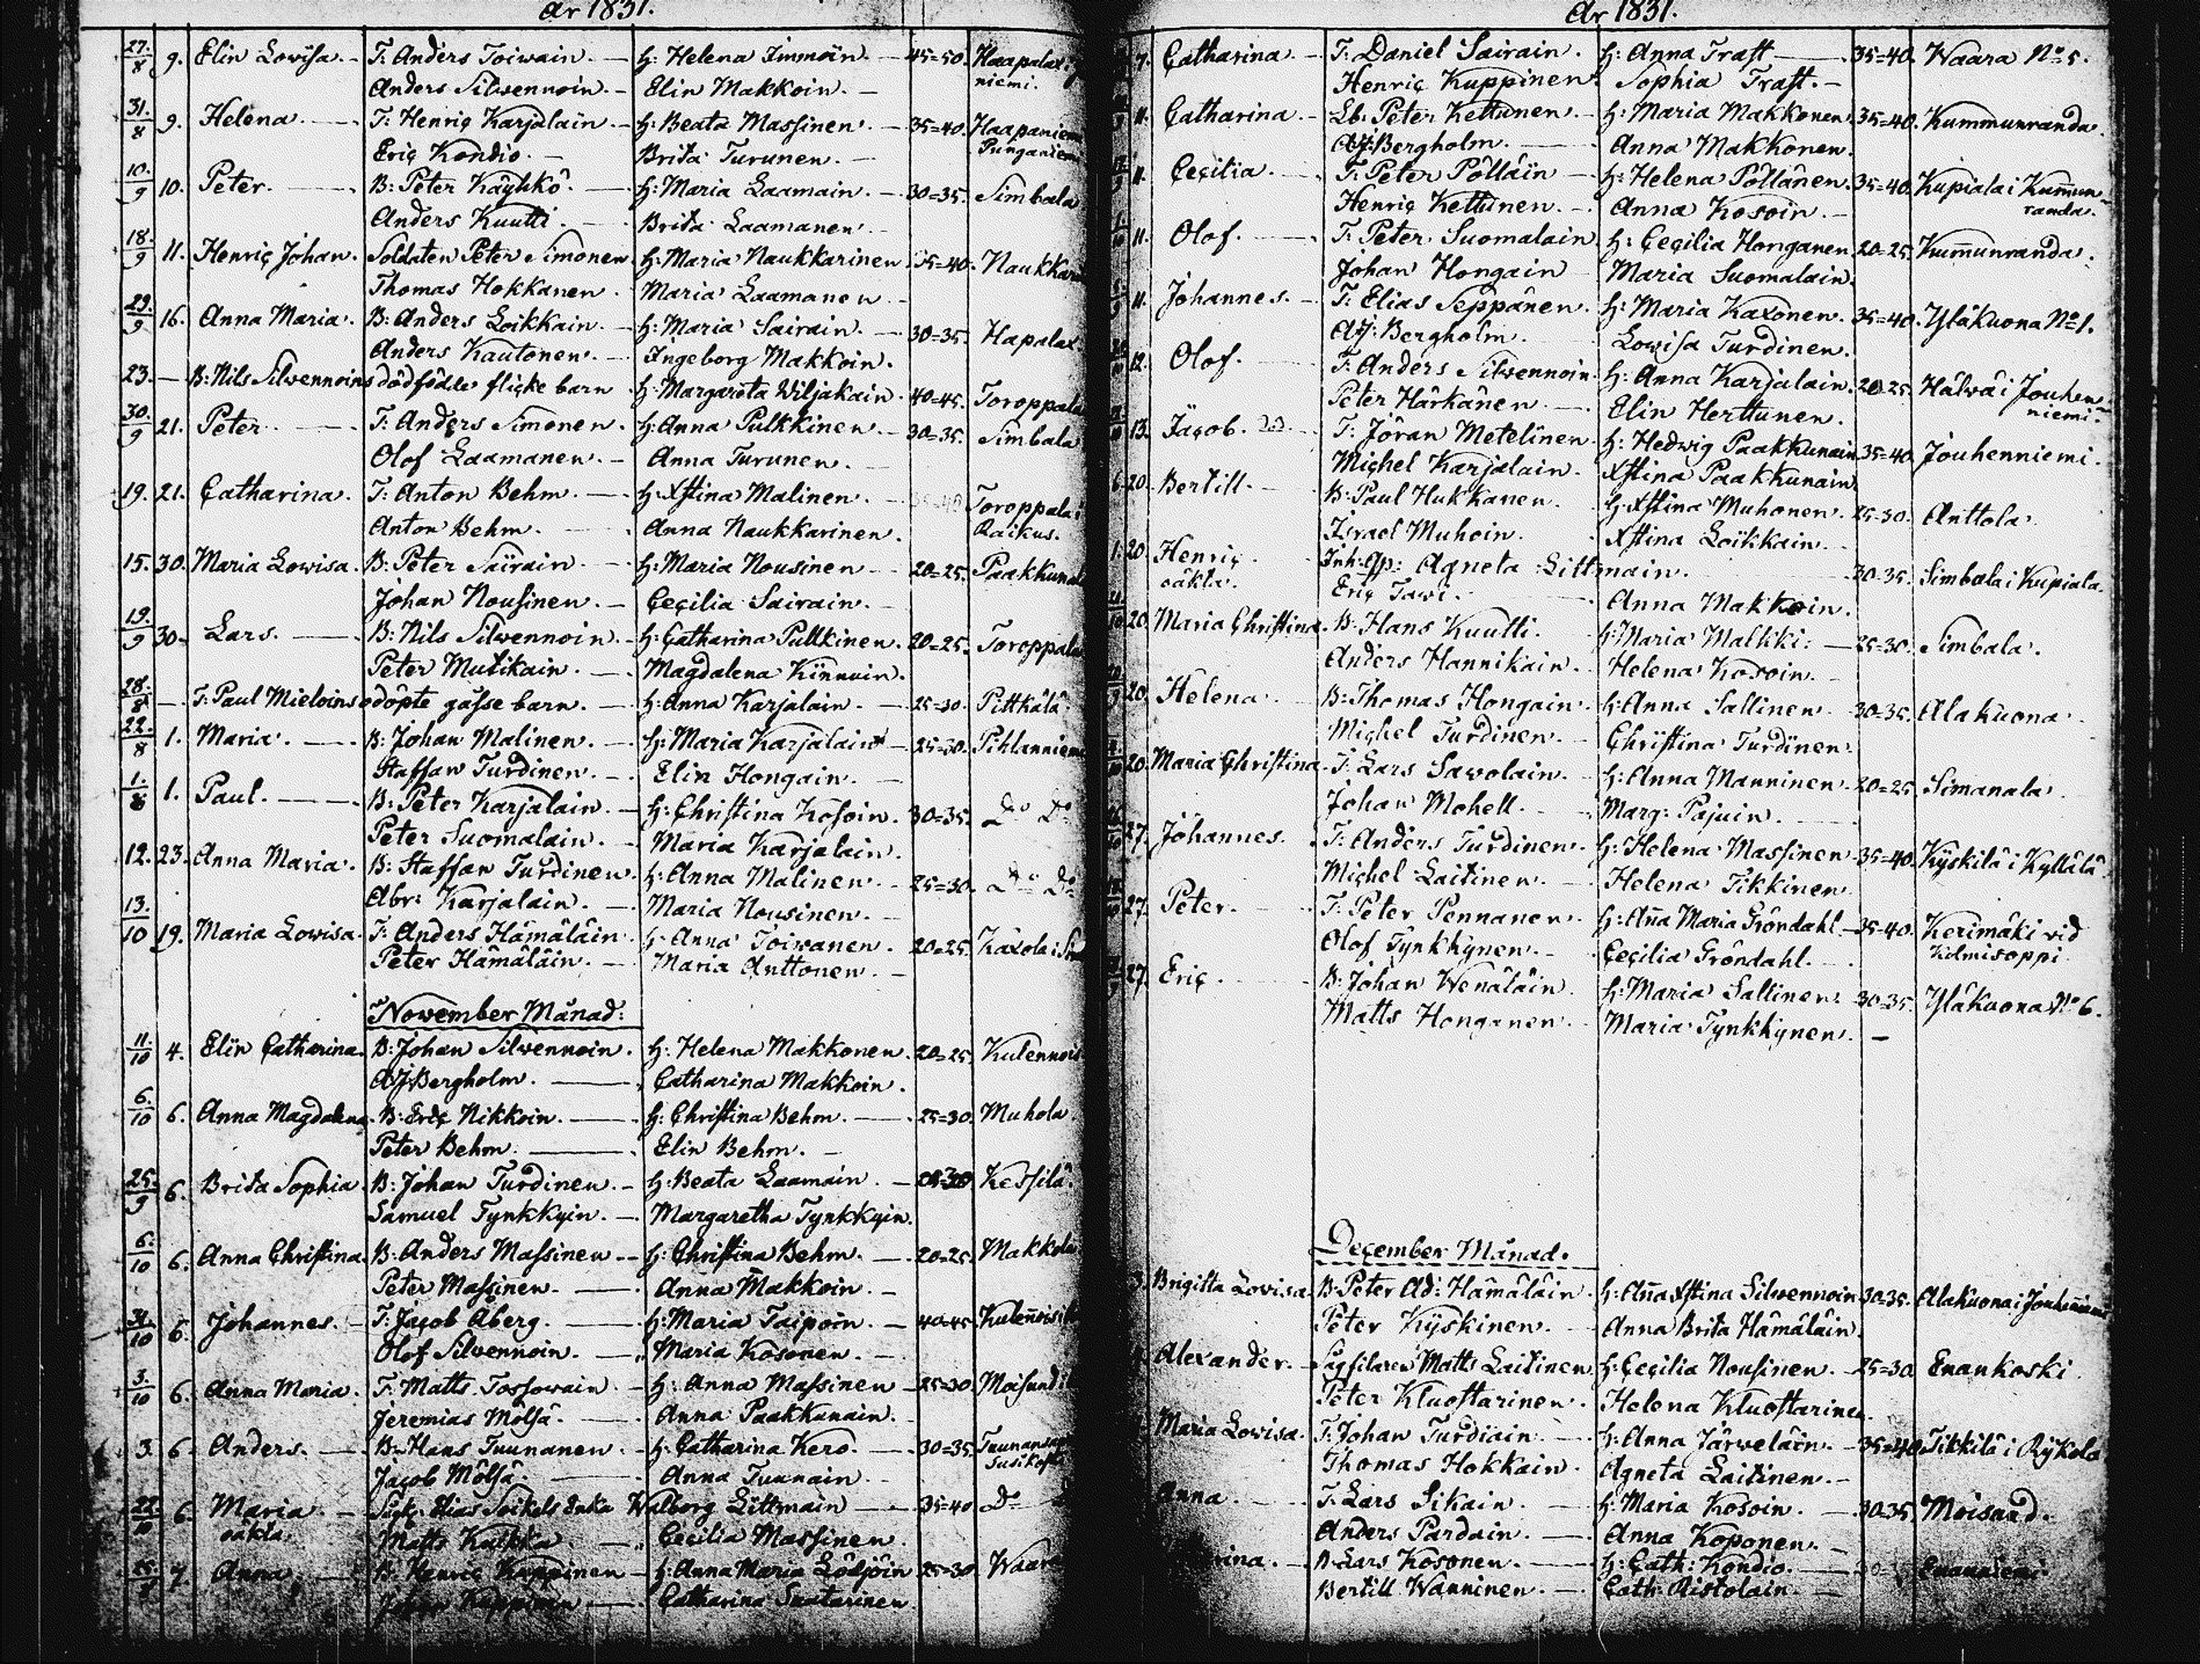 År 1831.
27/8 9. Elin Lowisa. T: Anders Toiwain. H: Helena Immoin. 45=50. Haapalax
Anders Silwennoin. Elin Makkoin. niemi.
31/8 9. Helena. T: Henriç Karjalain. H: Beata Massinen. 35=40. Haapaniemi
Eriç Kondio. Brita Turunen. Punganiemi
10/9 10. Peter. B: Peter Käyhkö. H: Maria Laamain. 30=35. Simbala
Anders Kuutti. Brita Laamanen.
18/9 11. Henriç Johan. Soldaten Peter Simonen H: Maria Naukkarinen 35=40. Naukkari
Thomas Hokkanen. Maria Laamanen.
29/9 16. Anna Maria. B: Anders Loikkain. H: Maria Sairain. 30=35. Hapalax
Anders Kautonen. Ingeborg Makkoin.
23. B: Nils Silwennoins dödfödde flicke barn H: Margareta Wiljakain. 40=45. Toroppala
30/9 21. Peter. T: Anders Simonen. H: Anna Pulkkinen. 30=35. Simbala
Olof Laamanen. Anna Turunen.
19. 21. Catharina. T: Anton Behm. H: Xstina Malinen. Toroppala i
Anton Behm. Anna Naukkarinen. Raikus.
15. 30. Maria Lowisa. B: Peter Sairain. H: Maria Nousinen 20=25. Paakkunal
Johan Nousinen. Ceçilia Sairain.
19/9 30. Lars. B: Nils Silwennoin. H: Catharina Pulkkinen. 20=25. Toroppala
Peter Mutikain. Magdalena Kinnuin.
28/8 T: Paul Mieloins odöpte gåsse barn. H: Anna Karjalain. 25=30. Pittkälä
22/8 1. Maria. B: Johan Malinen. H: Maria Karjalain 25=30. Pihlanniemi
Staffan Turdinen. Elin Hongain.
1/8 1. Paul. B: Peter Karjalain. H: Christina Kosoin. 30=35. Do Do
Peter Suomalain. Maria Karjalain.
12. 23. Anna Maria. B: Staffan Turdinen. H: Anna Malinen. 25=30. Do Do
Abr: Karjalain. Maria Nousinen.
13/10 19. Maria Lowisa. T: Anders Hämäläin. H: Anna Toiwanen. 20=25.
Peter Hämäläin. Maria Anttonen.
November Månad:
11/10 4. Elin Catharina. B: Johan Silwennoin. H: Helena Makkonen. 20=25. Kulennois
AJ Bergholm. Catharina Makkoin.
6/10 6. Anna Magdalena. B: Eriç Nikkoin. H: Christina Behm. 25=30. Muhola
Peter Behm. Elin Behm.
25/9 6. Brita Sophia B: Johan Turdinen. H: Beata Laamain. Kessilä
Samuel Tynkkyin. Margaretha Tynkkyin.
6/10 6. Anna Christina B: Anders Massinen H: Christina Behm. 20=25. Makkola
Peter Massinen. Anna Makkoin.
6. Johannes. T: Jaçob Åberg. H: Maria Taipoin. 40=45.
Olof Silwennoin. Maria Kosonen.
3/10 6. Anna Maria. T: Matts Tossowain. H: Anna Massinen 25=30.
Jeremias Mölsä. Anna Paakkunain.
3. 6. Anders. B: Hans Tuunanen. H: Catharina Kero. 30=35.
Jaçob Mölsä. Anna Tuunain.
22/10 6. Maria Walborg Littmain 35=40 Do
oäkta. Matts Kukka. Cecilia Massinen.
7. Anna. B: Henriç Kuppinen H: Anna Maria 25=30 Waara
Johan Kuppinen Catharina
År 1831.
7. Catharina. T: Daniel Sairain. H: Anna Trast 35=40. Waara No 5.
Henriç Kuppinen. Sophia Trast.
11. Catharina. Peter Kettunen. H: Maria Makkonen. 35=40. Kummunranda.
AJ: Bergholm. Anna Makkonen.
11. Ceçilia. T: Peter Pölläin H: Helena Pöllänen. 35=40. Kupiala i Kum̄un
Henriç Kettunen. Anna Kosoin. randa.
11. Olof. T: Peter Suomalain H: Ceçilia Honganen 20=25. Kum̄unranda.
Johan Hongain Maria Suomalain.
11. Johannes. T: Elias Seppänen. H: Maria Kaxonen. 35=40. Yläkuona No 1.
AJ: Bergholm. Lowisa Turdinen.
12. Olof. T: Anders Silwennoin. H: Anna Karjalain. 20=25. Hälwä i Jouhen
Peter Härkänen. Elin Herttunen. niemi.
13. Jaçob. T: Jöran Metelinen. H: Hedwig Paakkunain 35=40. Jouhenniemi.
Miçhel Karjalain. Xstina Paakkunain.
6. 20. Bertill. B: Paul Hukkanen. H: Xstina Muhonen. 25=30. Anttola.
Israel Muhoin. Xstina Loikkain.
1. 20. Henriç Inh: Agneta Littmain. 30=35. Simbala i Kupiala.
oäkta. Eriç Tawi. Anna Makkoin.
20. Maria Christina. B: Hans Kuutti. H: Maria Malkki. 25=30. Simbala.
Anders Hannikain. Helena Kosoin.
20. Helena. B: Thomas Hongain. H: Anna Sallinen 30=35. Alakuona.
Miçhel Turdinen. Christina Turdinen.
20. Maria Christina. T: Lars Sawolain. H: Anna Manninen. 20=25. Simanala.
Johan Mohell. Marg: Pajuin.
27. Johannes. T: Anders Turdinen. H: Helena Massinen 35=40. Kyskilä i Kyllälä.
Miçhel Laitinen. Helena Tikkinen.
27. Peter. T: Peter Pennanen. H: Ana Maria Gröndahl. 35=40. Kerimäki vid
Olof Tynkkynen. Ceçilia Gröndahl. Kulmisoppi.
27. Eriç. B: Johan Wenäläin H: Maria Sallinen. 30=35. Yläkuona No 6.
Matts Honganen. Maria Tynkkynen.
December Månad.
3. Brigitta Lovisa. B: Peter Ad: Hämäläin. H: Ana Xstina Silwennoin 30=35. Alakuona i Jouhenniemi
Peter Kyskinen. Anna Brita Hämäläin.
Alexander. Sagfilaren Matts Laitinen H: Ceçilia Nousinen. 25=30 Enankoski.
Peter Kluostarinen. Helena Kluostarinen.
Maria Lowisa. T: Johan Turdiain. H: Anna Järweläin. 35=40. Tikkilä i Rykola
Thomas Hokkain. Agneta Laitinen.
Anna. T: Lars Sikain. H: Maria Kosoin. 30=35. Moisand.
Anders Pardain. Anna Koponen.
B: Lars Kosonen. H: Cath: Kondio.
Bertill Wanninen. Cath: Ristolain.